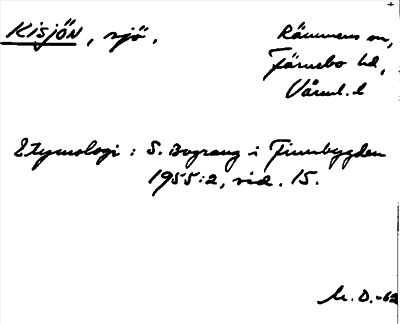 KISJÖN, sjö,
Rämmens sn,
Färnebo hd,
Värml. l
Etymologi: S. Bograng i Finnbygden
1955:2, sid. 15.
M. D. -62